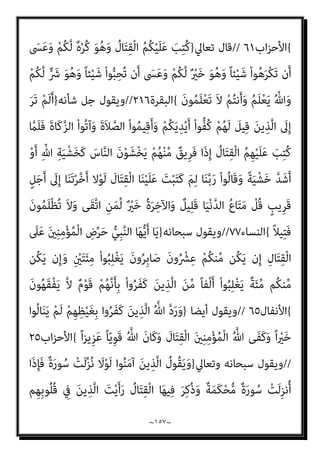 {الأحزاب٦١ //قال تعالي{كُتِبَ عَلَيْكُمُ الْقِتَالُ وَهُوَ كُرْهٌ لَّكُمْ وَعَسَى
أَن تَكْرَهُواْ شَيْئاً وَهُوَ خَيْرٌ لَّكُمْ وَعَسَى أَن تُحِبُّواْ شَيْئاً وَهُوَ شَرٌّ لَّكُمْ
وَاللّهُ يَعْلَمُ وَأَنتُمْ لاَ تَعْلَمُونَ }البقرة٢١٦ //ويقول جل شأنه{أَلَمْ تَرَ
إِلَى الَّذِينَ قِيلَ لَهُمْ كُفُّواْ أَيْدِيَكُمْ وَأَقِيمُواْ الصَّلاَةَ وَآتُواْ الزَّكَاةَ فَلَمَّا
كُتِبَ عَلَيْهِمُ الْقِتَالُ إِذَا فَرِيقٌ مِّنْهُمْ يَخْشَوْنَ النَّاسَ كَخَشْيَةِ اللّهِ أَوْ
أَشَدَّ خَشْيَةً وَقَالُواْ رَبَّنَا لِمَ كَتَبْتَ عَلَيْنَا الْقِتَالَ لَوْلا أَخَّرْتَنَا إِلَى أَجَلٍ
قَرِيبٍ قُلْ مَتَاعُ الدَّنْيَا قَلِيلٌ وَالآخِرَةُ خَيْرٌ لِّمَنِ اتَّقَى وَلاَ تُظْلَمُونَ
فَتِيلاً }النساء٧٧ //ويقول سبحانه{يَا أَيُّهَا النَّبِيُّ حَرِّضِ الْمُؤْمِنِينَ عَلَى
الْقِتَالِ إِن يَكُن مِّنكُمْ عِشْرُونَ صَابِرُونَ يَغْلِبُواْ مِئَتَيْنِ وَإِن يَكُن
مِّنكُم مِّئَةٌ يَغْلِبُواْ أَلْفاً مِّنَ الَّذِينَ كَفَرُواْ بِأَنَّهُمْ قَوْمٌ لاَّ يَفْقَهُونَ
}الأنفال٦٥ //ويقول أيضا {وَرَدَّ اللَّهُ الَّذِينَ كَفَرُوا بِغَيْظِهِمْ لَمْ يَنَالُوا
خَيْراً وَكَفَى اللَّهُ الْمُؤْمِنِينَ الْقِتَالَ وَكَانَ اللَّهُ قَوِيّاً عَزِيزاً }الأحزاب٢٥
//ويقول سبحانه وتعالي{وَيَقُولُ الَّذِينَ آمَنُوا لَوْلَا نُزِّلَتْ سُورَةٌ فَإِذَا
أُنزِلَتْ سُورَةٌ مُّحْكَمَةٌ وَذُكِرَ فِيهَا الْقِتَالُ رَأَيْتَ الَّذِينَ فِي قُلُوبِهِم
~١٥٧~